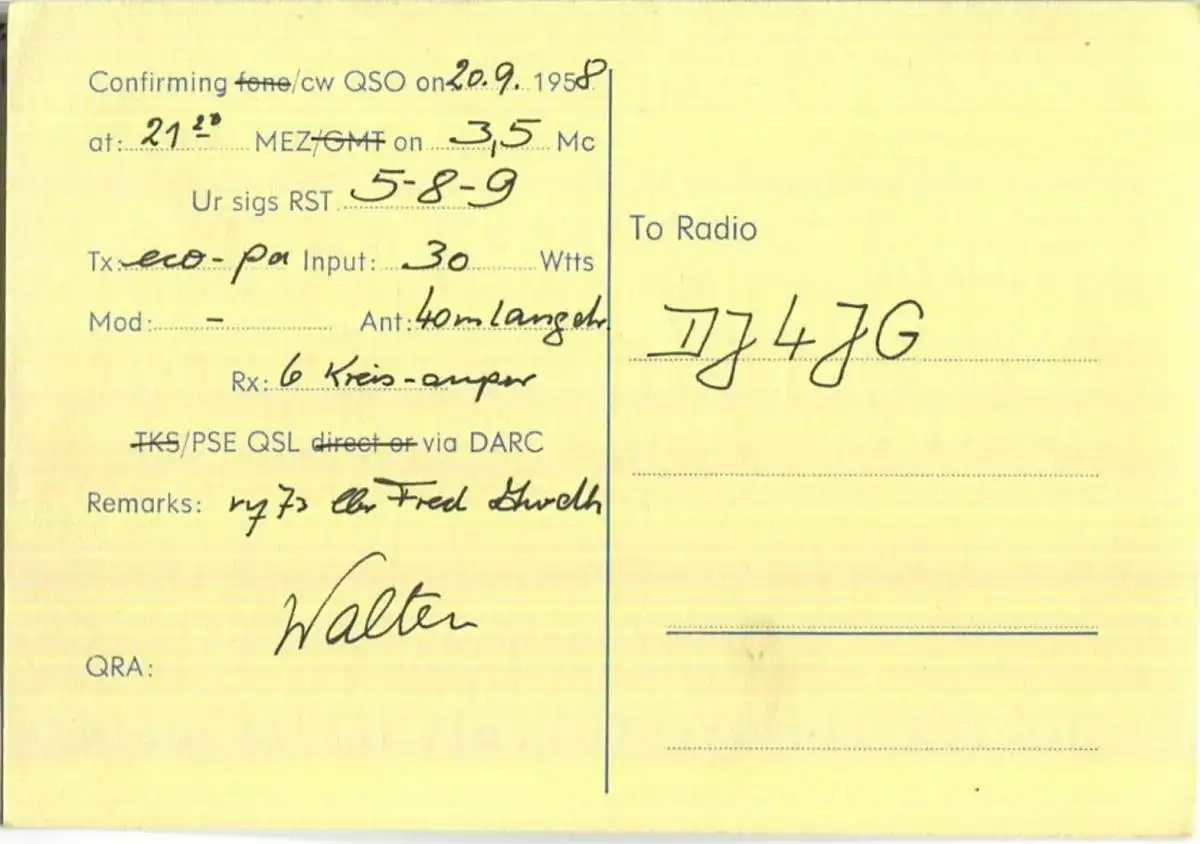 Confirming fone/cw QSO on 20.9. 1958
at: 21²⁰ MEZ/GMT on 3,5 Mc
Ur sigs RST 5-8-9
Tx: eco-pa Input: 30 Wtts
Mod: – Ant: 40m langdr.
Rx: 6 Kreis-
TKS/PSE QSL direct or via DARC
Remarks: vy 73 Fred
Walter
QRA:
To Radio
DJ4JG